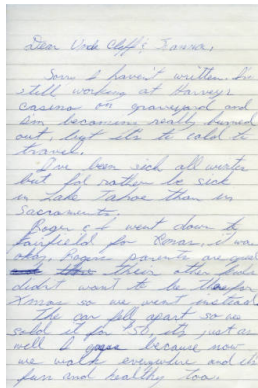 Dear Uncle Cliff & Joanna,
Sorry I haven't written. I'm
still working at Harveys
casino on graveyard and
I'm becoming really burned
out, but it's to cold to
travel.
I've been sick all winter
but I'd rather be sick
in Lake Tahoe than in
Sacramento.
Roger & I went down to
Fairfield for Xmas, it was
okay, Rogers parents are good
their other kids
didn't want to be there for
Xmas so we went instead
The car fell apart so we
sold it for $50, its just as
well I because now
we walk everywhere and its
fun and healthy too.